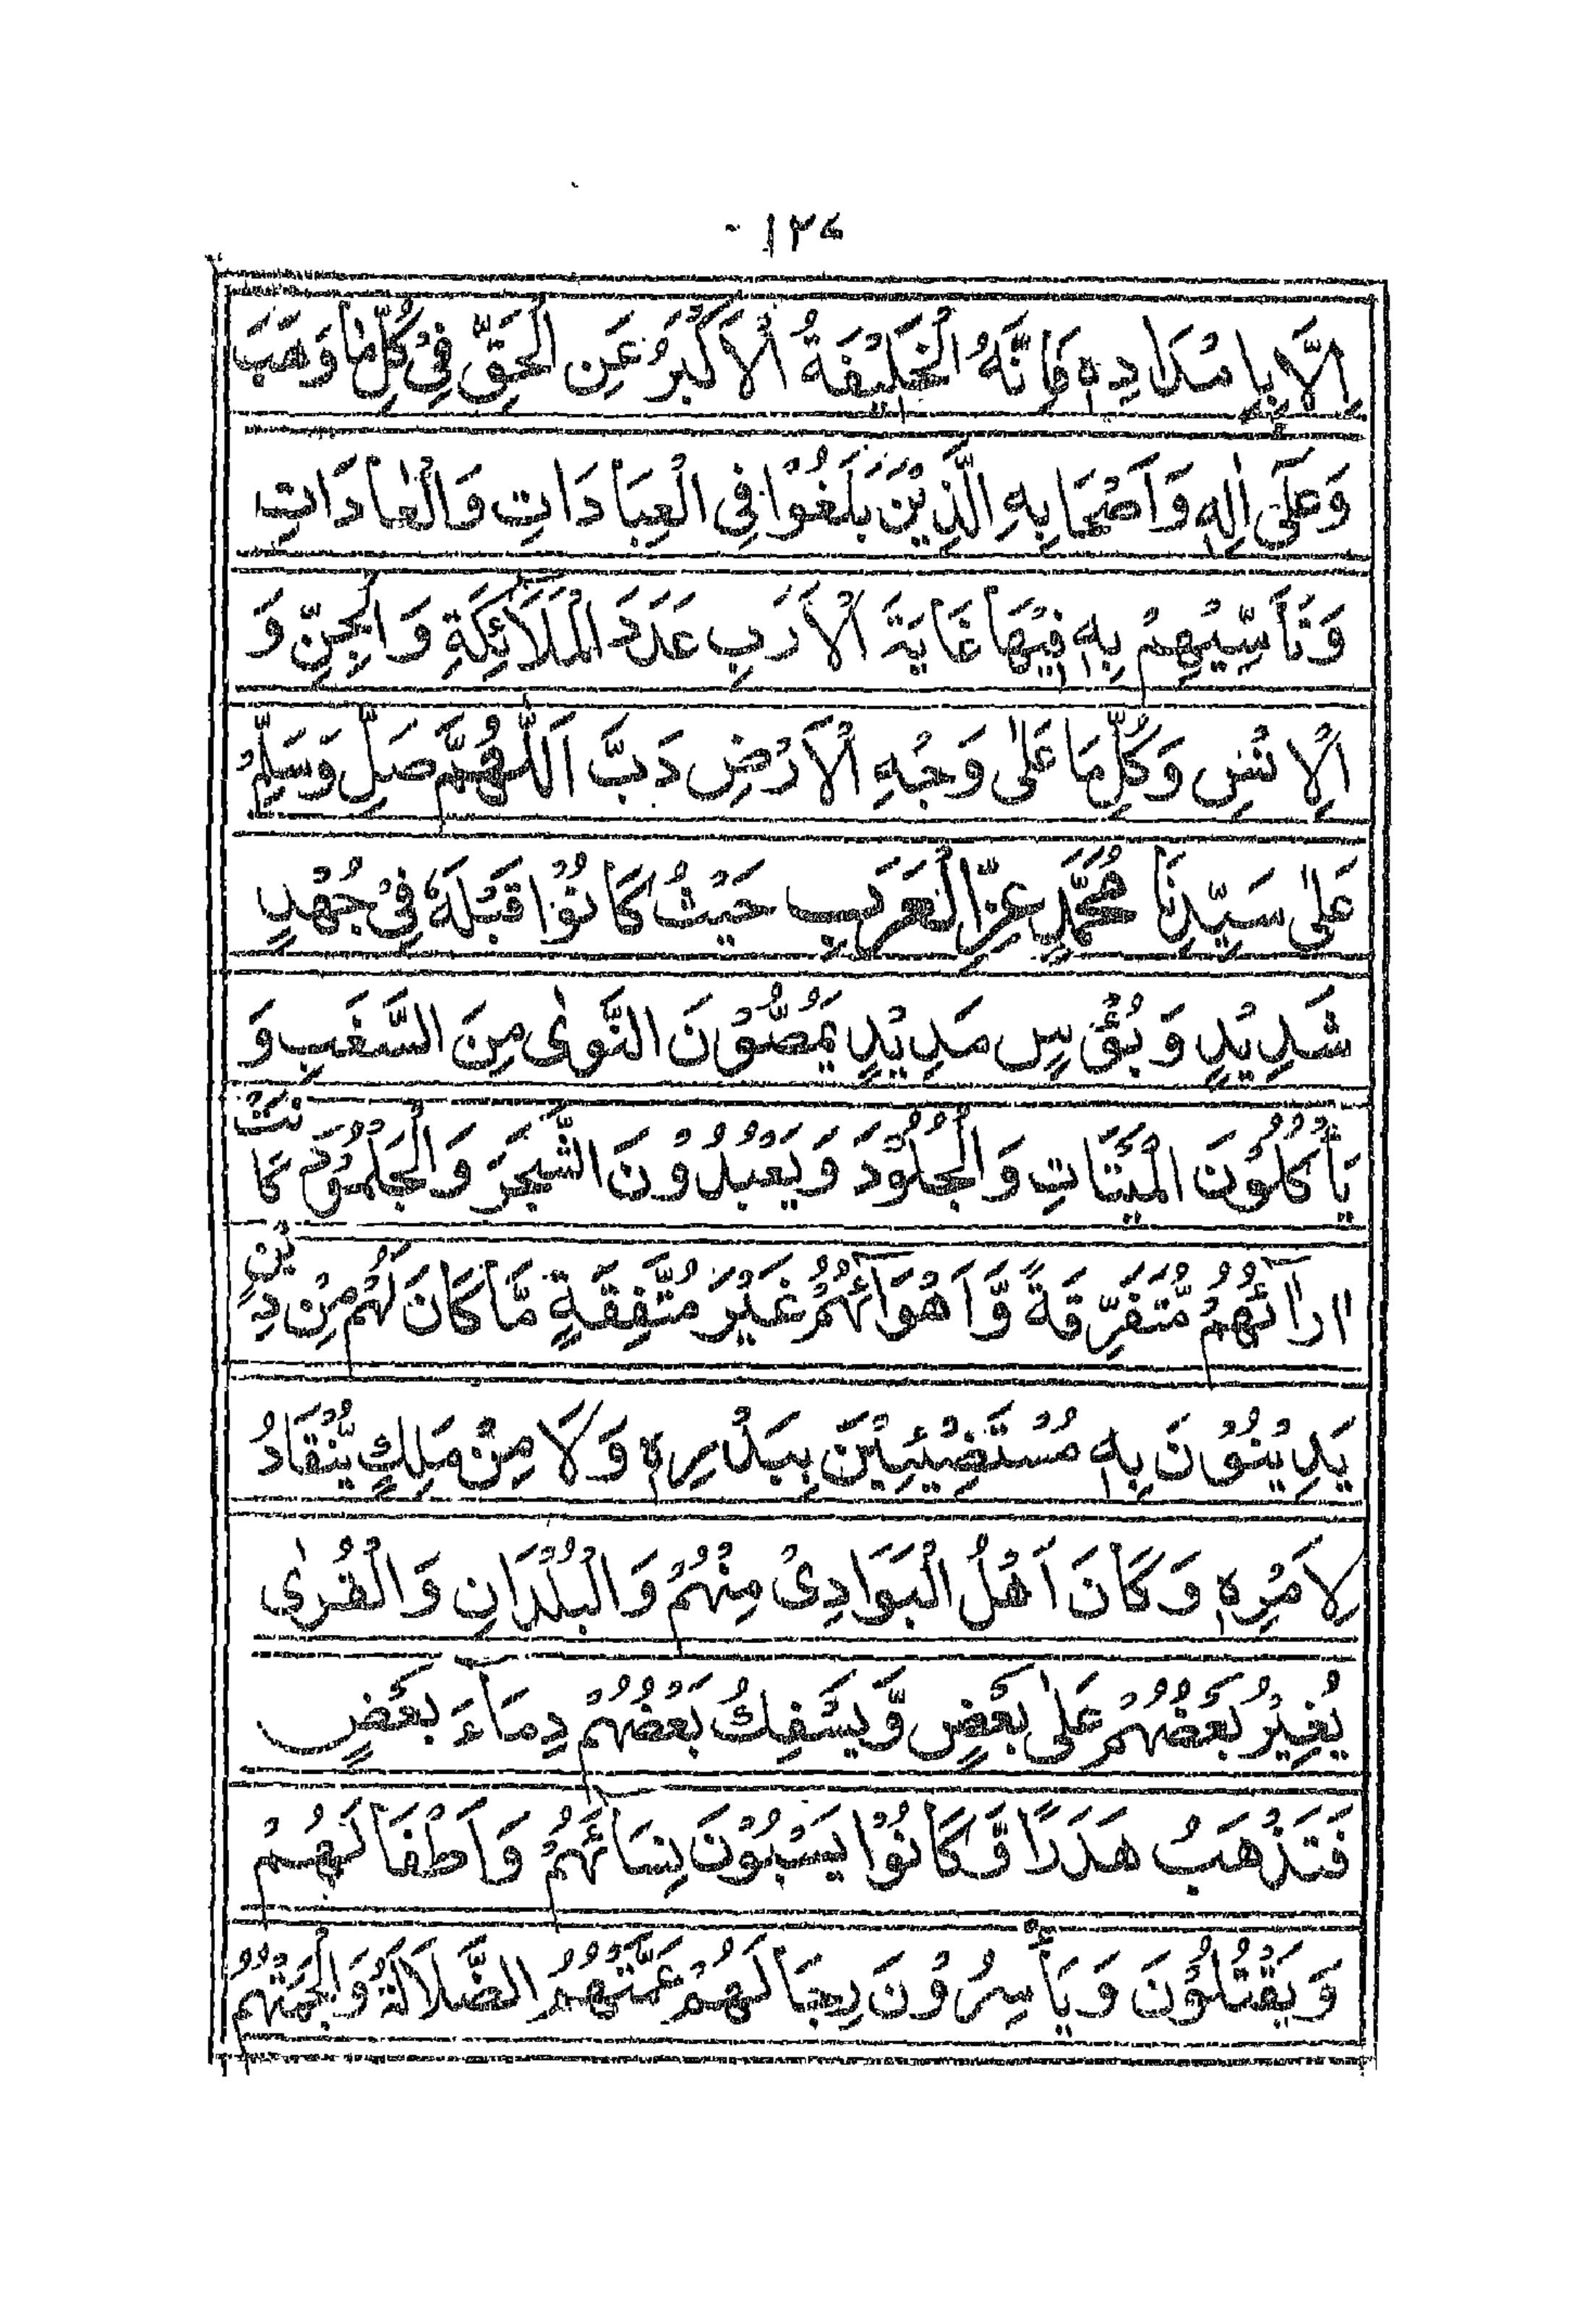 ۱۲۷
اِلَّا بِاِمْدَادِهٖ فَاِنَّهُ الْخَلِيْفَةُ الْاَكْبَرُ عَنِ الْحَقِّ فِيْ كُلِّ مَا وَهَبَ
وَعَلٰٓى اٰلِهٖ وَاَصْحَابِهِ الَّذِيْنَ بَلَغُوْا فِى الْعِبَادَاتِ وَالْعَادَاتِ
وَتَأَسِّيْهِمْ بِهٖ فِيْهَا غَايَةَ الْاَدَبِ عَدَدَ الْمَلَآئِكَةِ وَالْجِنِّ وَ
الْاِنْسِ وَكُلِّ مَا عَلٰى وَجْهِ الْاَرْضِ دَبَّ اَللّٰهُمَّ صَلِّ وَسَلِّمْ
عَلٰى سَيِّدِنَا مُحَمَّدٍ عِزِّ الْعَرَبِ حَيْثُ كَانُوْا قَبْلَهٗ فِيْ جُهْدٍ
شَدِيْدٍ وَبُؤْسٍ مَدِيْدٍ يَمُصُّوْنَ النَّوٰى مِنَ السَّغَبِ وَ
يَأْكُلُوْنَ الْمَيْتَاتِ وَالْجُلُوْدَ وَيَعْبُدُوْنَ الشَّجَرَ وَالْجَلْمُوْدَ كَانَتْ
اٰرَآئُهُمْ مُّتَفَرِّقَةً وَّاَهْوَآئُهُمْ غَيْرَ مُتَّفِقَةٍ مَّا كَانَ لَهُمْ مِنْ دِيْنٍ
يَدِيْنُوْنَ بِهٖ مُسْتَضِيْئِيْنَ بِبَدْرِهٖ وَلَا مِنْ مَلِكٍ يَّنْقَادُ
لِاَمْرِهٖ وَكَانَ اَهْلُ الْبَوَادِىْ مِنْهُمْ وَالْبُلْدَانِ وَالْقُرٰى
يُغِيْرُ بَعْضُهُمْ عَلٰى بَعْضٍ وَّيَسْفِكُ بَعْضُهُمْ دِمَآءَ بَعْضٍ
فَتَذْهَبُ هَدَرًا وَّكَانُوْا يَسْبُوْنَ نِسَائَهُمْ وَاَطْفَالَهُمْ
وَيَقْتُلُوْنَ وَيَأْسِرُوْنَ رِجَالَهُمْ عَمَّتْهُمُ الضَّلَالَةُ وَالْجَمَتْهُمُ